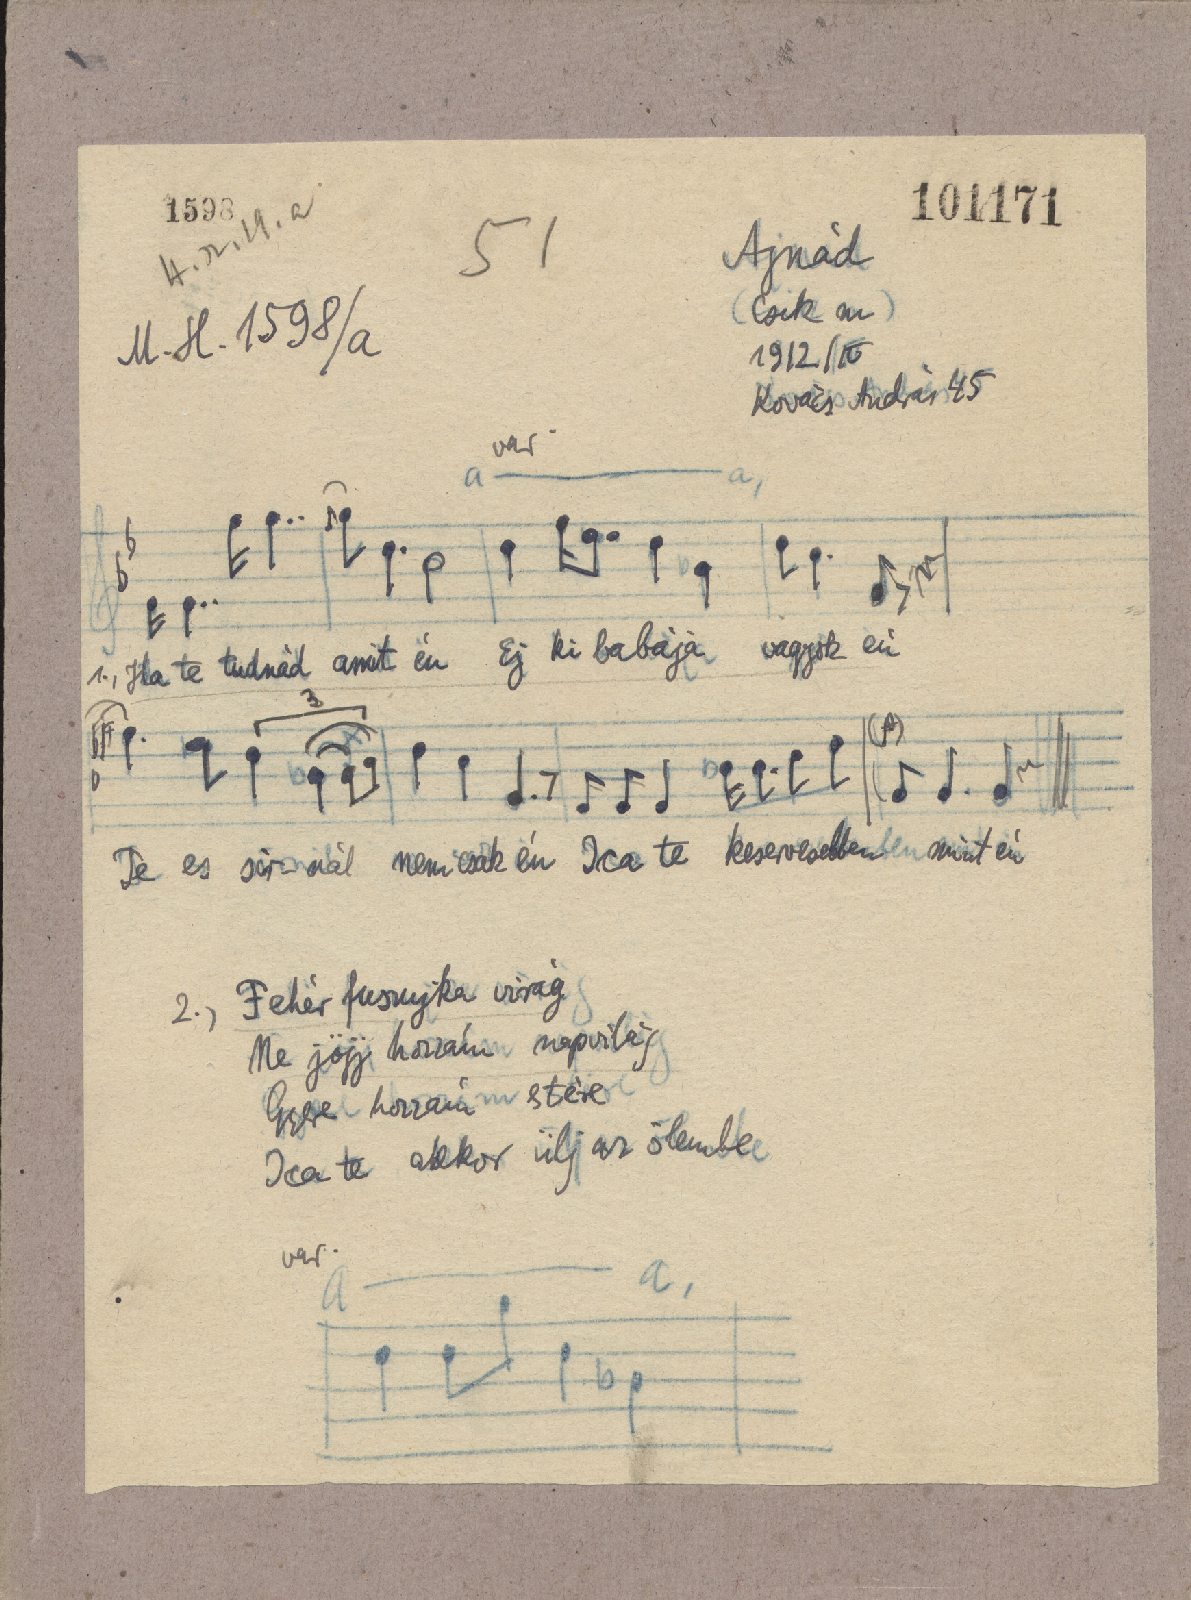 1598
101171
51
M.-H. 1598/a
Ajnád
(Csik m)
1912/IV
Kovács András 45
var.
a a,
1., Ha te tudnád amit én Ej ki babája vagyok én
3
Te es sirnál nem csak én Ica te keservesebben mint én
2., Fehér fusujka virág
Ne jöjj hozzám napvilág
Gyere hozzám estére
Ica te akkor ülj az ölembe
var.
a a,